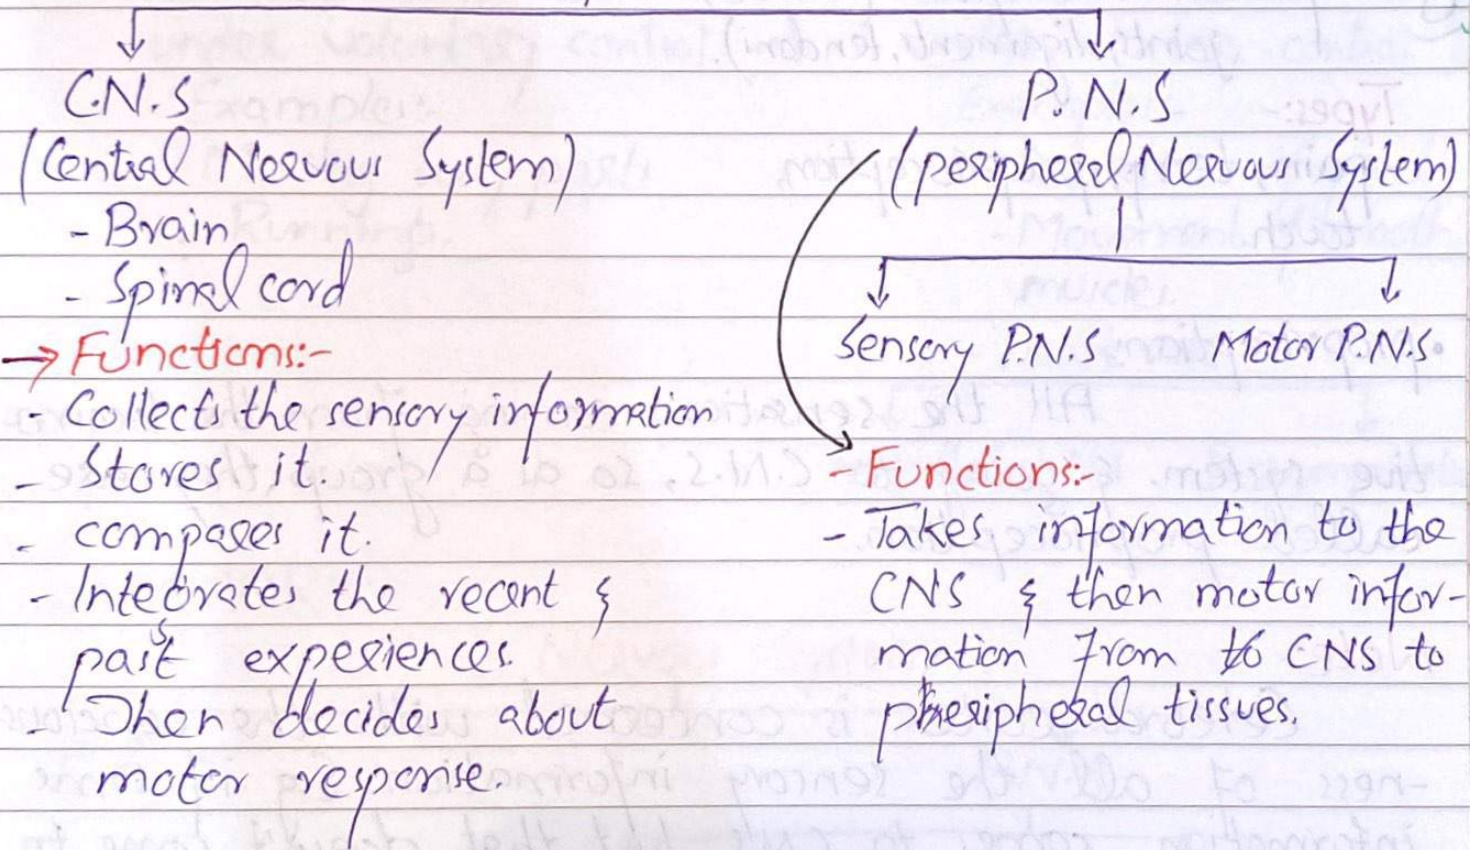 C.N.S
(Central Nervous System)
- Brain
- Spinal cord
→ Functions:-
- Collects the sensory information
- Stores it.
- compares it.
- Integrates the recent &
past experiences.
- Then decides about
motor response.
P.N.S
(peripheral Nervous System)
Sensory P.N.S Motor P.N.S.
- Functions:-
- Takes information to the
CNS & then motor infor-
mation from CNS to
pheripheral tissues.